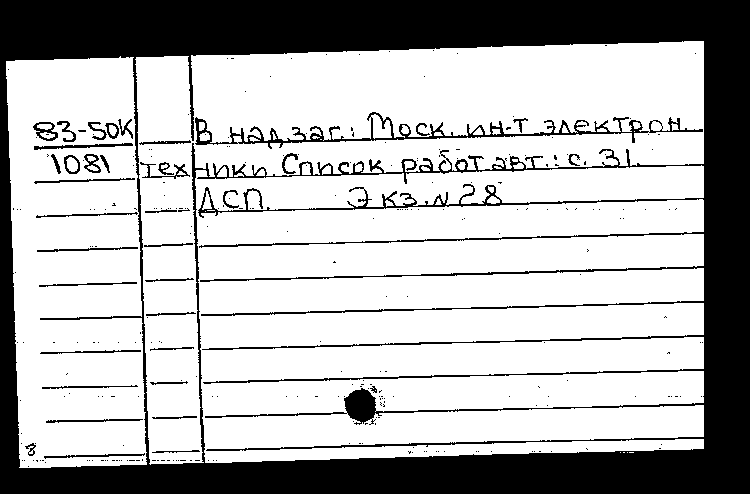 83-50К В надзаг.: Моск. ин-т электрон.
1081 техники. Список работ авт.: с. 31.
ДСП. Экз. № 28
8